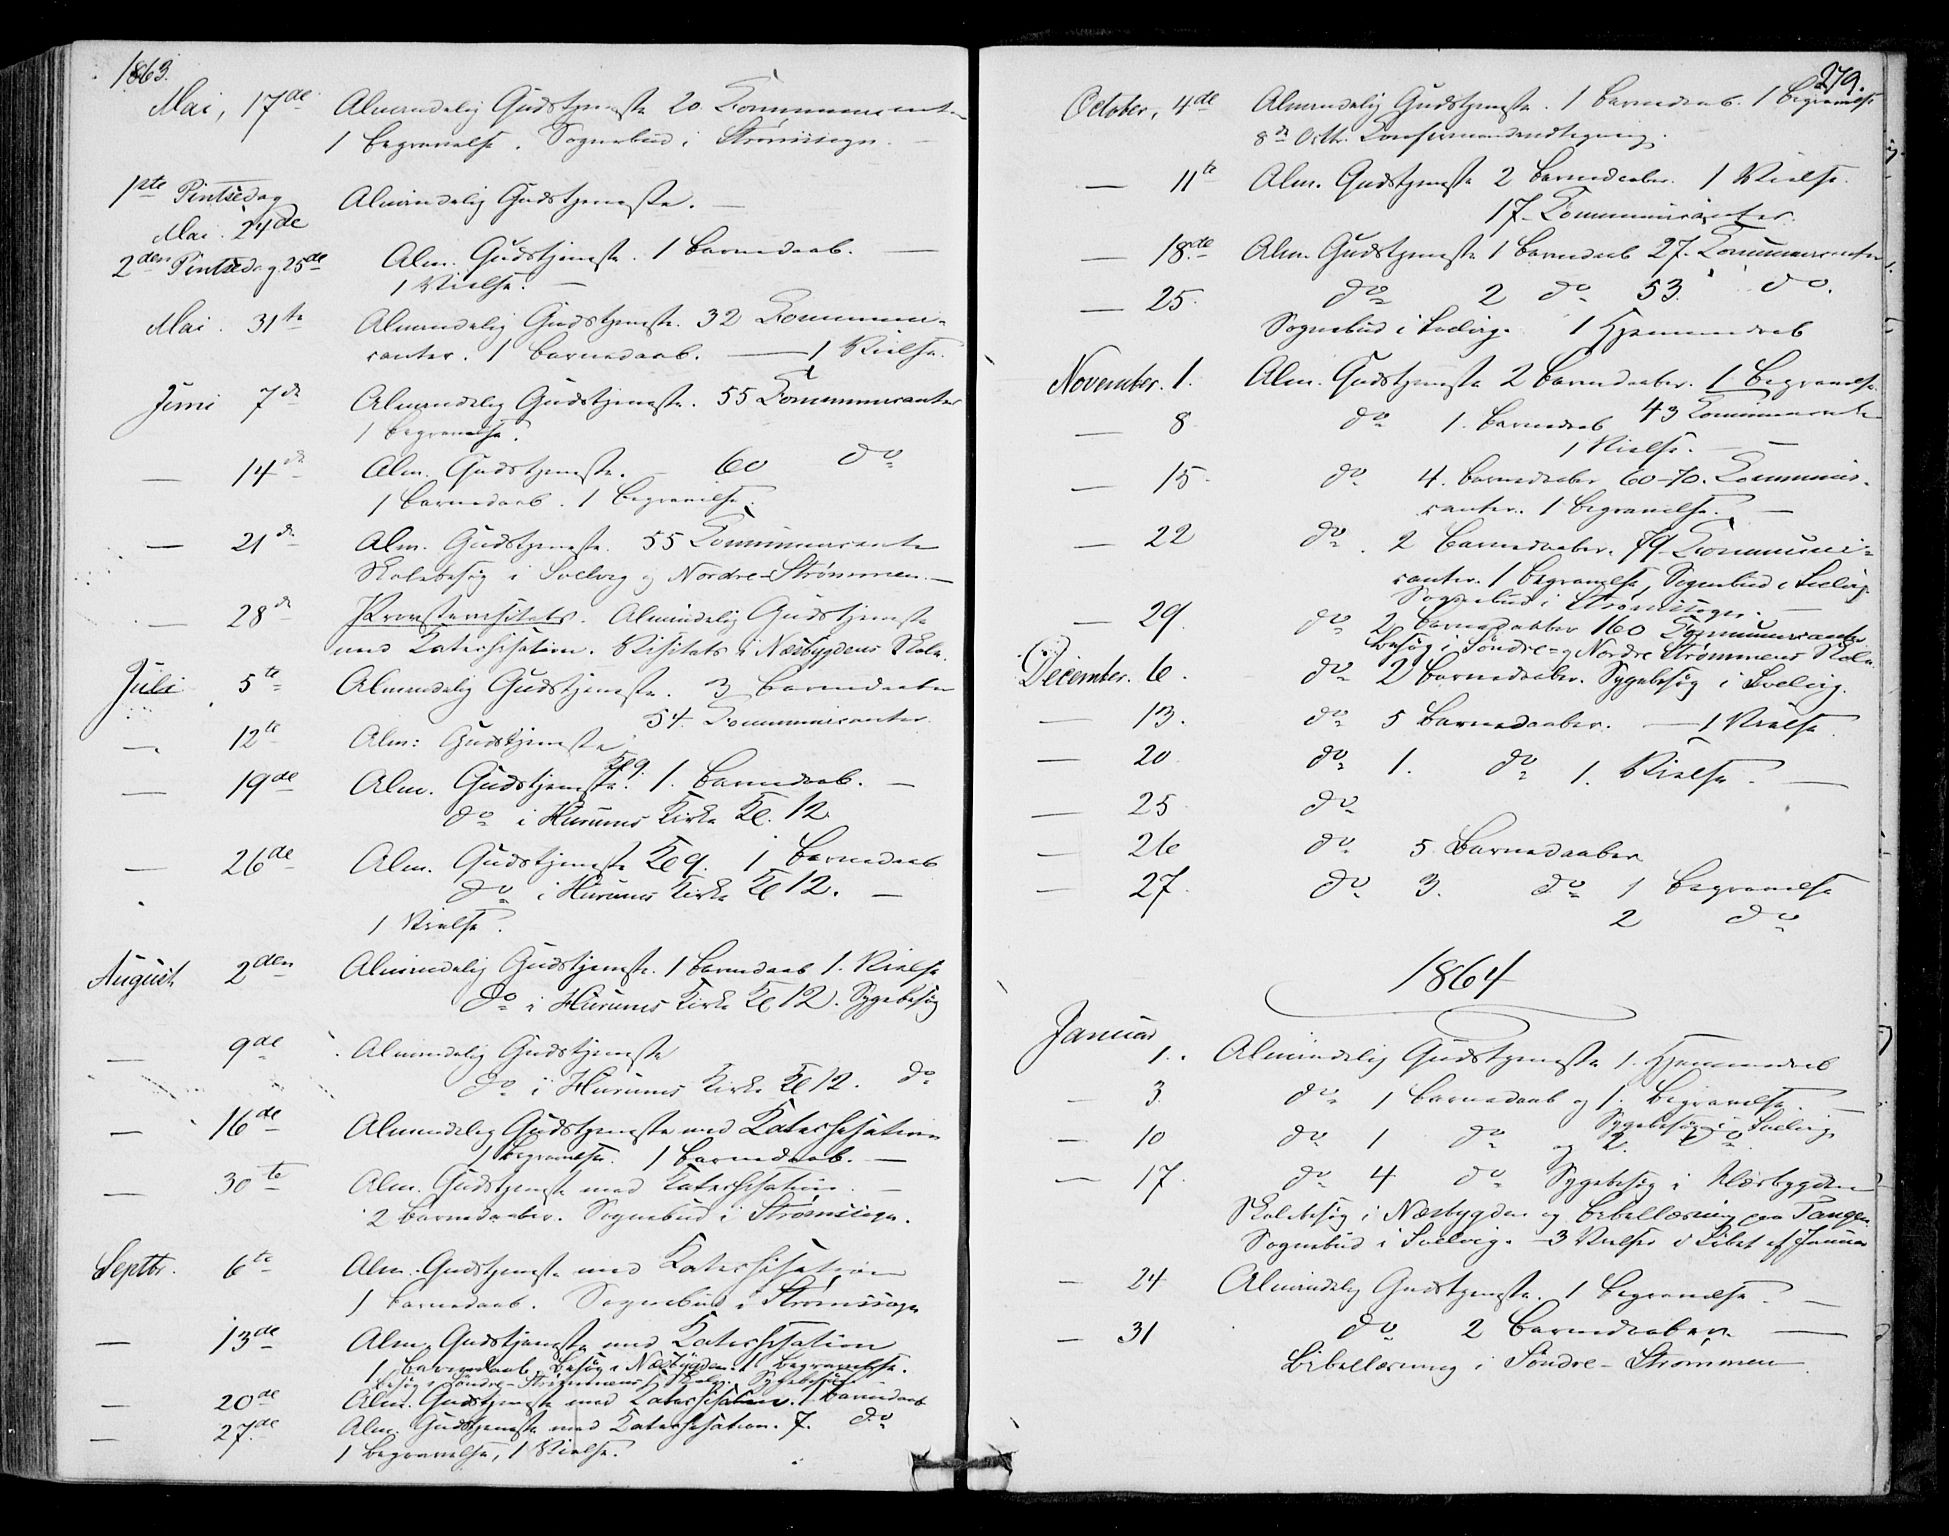 1863.
Mai, 17de Almindelig Gudstjeneste 20 Communicanter
1 Begravelse. Sognebud i Strømssogn. —
1ste Pintsedag
Mai. 24de Almindelig Gudstjeneste. —
2den Pintsedag. 25de Alm. Gudstjeneste. 1 Barnedaab. —
1 Vielse. —
Mai. 31te Almindelig Gudstjeneste. 32 Communi-
canter. 1 Barnedaab. — 1 Vielse.
Juni 7de Almindelig Gudstjeneste. 55 Communicanter
1 Begravelse.
— 14de Alm. Gudstjeneste. — 60 do
1 Barnedaab. 1 Begravelse.
— 21de Alm. Gudstjeneste. 55 Communicanter
Skolebesøg i Svelvig og Nordre-Strømmen. —
— 28de Provstevisitats. Almindelig Gudstjeneste
med Katechisation. Visitats i Næsbygdens Skole.
Juli 5te Almindelig Gudstjeneste. 3 Barnedaaber
54 Communicanter.
— 12te Alm: Gudstjeneste
— 19de Alm. Gudstjeneste. Kl 9. 1. Barnedaab. —
do i Hurums Kirke Kl. 12
— 26de Alm. Gudstjeneste Kl 9. 1 Barnedaab
do i Hurums Kirke Kl 12. —
1 Vielse.
August 2den Almindelig Gudstjeneste. 1 Barnedaab 1. Vielse
do i Hurums Kirke Kl 12. Sygebesøg
— 9de Almindelig Gudstjeneste
do i Hurums Kirke Kl 12. do
— 16de Almindelig Gudstjeneste med Katechisation
1 Begravelse. 1 Barnedaab. —
— 30te Alm. Gudstjeneste med Katechisation. —
2 Barnedaaber. Sognebud i Strømssogn.
Septbr. 6te Alm. Gudstjeneste med Katechisation
1 Barnedaab. Sognebud i Strømssogn
— 13de Alm. Gudstjeneste med Katechisation
1 Barnedaab. Besøg i Næsbygden. 1. Begravelse.
Besøg i Søndre-Strømmens Skole. Sygebesøg
— 20de Alm. Gudstjeneste med Katechisation. 1 Barnedaab
— 27de Alm. Gudstjeneste med Katechisation. 7. do
1 Begravelse, 1 Vielse.
279.
October, 4de Almindelig Gudstjeneste. 1 Barnedaab. 1 Begravelse
8de Octbr. Confirmandindtegning.
— 11te Alm. Gudstjeneste 2 Barnedaaber. 1 Vielse.
17 Communicanter.
— 18de Alm. Gudstjeneste 1 Barnedaab 27. Communicanter
— 25. do 2 do 53. do.
Sognebud i Svelvig. 1 Hjemmedaab
November. 1. Alm. Gudstjeneste 2 Barnedaaber. 1 Begravelse.
— 8. do 1. Barnedaab 43 Communicanter
1 Vielse. —
— 15. do 4. Barnedaaber 60-70. Communi-
canter. 1 Begravelse. —
— 22 do. 2 Barnedaaber. 79. Communi-
canter. 1 Begravelse, Sognebud i Svelvig
Sognebud i Strømssogn. —
— 29. do 2 Barnedaaber 160 Communicanter
Besøg i Søndre- og Nordre Strømmens Skole.
December. 6. do 2 Barnedaaber. Sygebesøg i Svelvig.
— 13. do 5 Barnedaaber. — 1 Vielse.
— 20 do 1. do 1. Vielse. —
— 25 do
— 26 do 5 Barnedaaber
— 27. do 3. do 1 Begravelse
2 do
1864
Januar
1. Almindelig Gudstjeneste 1. Hjemmedaab
— 3. do 1 Barnedaab og 1. Begravelse. —
Sygebesøg i Svelvig
— 10 do 1 do og 2. do.
— 17. do 4 do Sygebesøg i Næsbygden
Skolebesøg i Næsbygden og Bibellæsning paa Tangen
Sognebud i Svelvig. — 3 Vielser i Løbet af Januar
— 24 Almindelig Gudstjeneste. 1 Begravelse. —
— 31 do 2 Barnedaaber. —
Bibellæsning i Søndre-Strømmen.